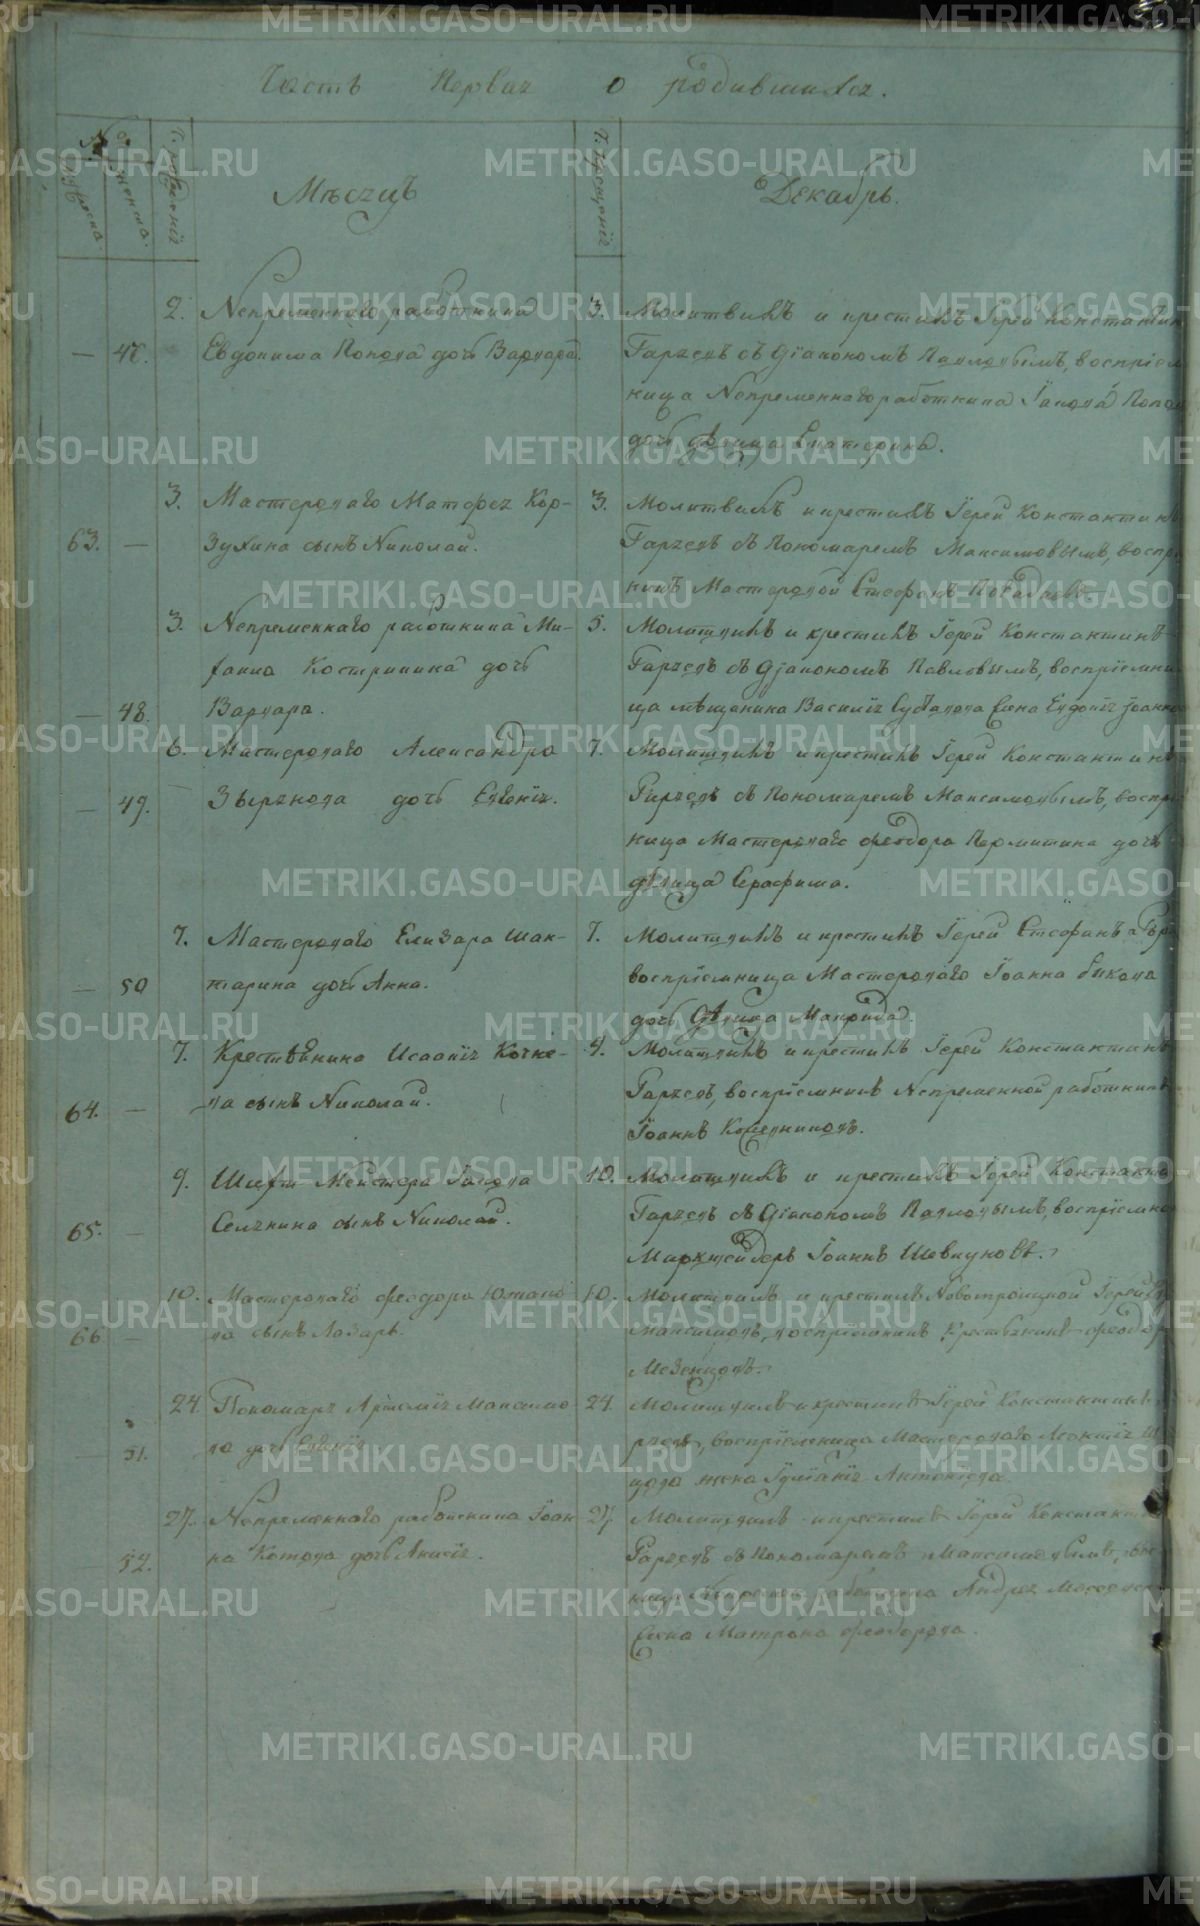 Часть Первая о родившихся.
№
мужеска.
женска.
Ч. рождения
Мѣсяцъ
Ч. крещения
Декабрь.
2. Непременнаго работника
— 47. Евдокима Попова дочь Варвара.
3. Молитвилъ и крестилъ Іерей Константин
Гаряевъ съ Діакономъ Павловымъ, воспріем
ница Непременнаго работника Іакова Попов
дочь девица Екатерина.
3. Мастероваго Матфея Кор-
63. — зухина сынъ Николай.
3. Молитвилъ и крестилъ Іерей Константинъ
Гаряевъ съ Пономаремъ Максимовымъ, воспр
никъ Мастеровой Стефанъ
3. Непременнаго работника Ми-
хаила Костринина дочь
— 48. Варвара.
5. Молитвилъ и крестилъ Іерей Константинъ
Гаряевъ съ Діакономъ Павловымъ, воспріемни
ца мѣщанина Василія жена Евдокія Іоанно
6. Мастероваго Александра
— 49. Зырянова дочь Евгенія.
7. Молитвилъ и крестилъ Іерей Константинъ
Гаряевъ съ Пономаремъ Максимовымъ, воспрі
ница Мастероваго Феодора Пермитина дочь
дѣвица Серафима.
7. Мастероваго Елизара Шак-
— 50 тарина дочь Анна.
7. Молитвилъ и крестилъ Іерей Стефанъ
воспріемница Мастероваго Іоанна Быкова
дочь Дѣвица
7. Крестьянина Исаакія Кочне-
64. — ва сынъ Николай.
9. Молитвилъ и крестилъ Іерей Константинъ
Гаряевъ, воспріемникъ Непременной работникъ
Іоаннъ Кожевниковъ.
9. Шихт-Мейстера Іакова
65. — Селянина сынъ Николай.
10. Молитвилъ и крестилъ Іерей Константи
Гаряевъ съ Діакономъ Павловымъ, воспріемни
Маркшейдеръ Іоаннъ Шевкуновъ.
10. Мастероваго Феодора Южако
66 — ва сынъ Лазарь.
10. Молитвилъ и крестилъ Новотроицкой Іерей
Максимовъ, воспріемникъ Крестьянинъ Феодор
Мезенцовъ.
24. Пономаря Артемія Максимо-
— 51. ва дочь Евгенія
24. Молитвилъ и крестилъ Іерей Константинъ
ряевъ, воспріемница Мастероваго Леонтія
цова жена Іуліанія Антонова.
27. Непременнаго работника Іоан-
52. на Котова дочь Анисія.
27. Молитвилъ и крестилъ Іерей Констант
Гаряевъ съ Пономаремъ Максимовымъ, вос
ница Непремен. работника Андрея
жена Матрона Феодорова.
METRIKI.GASO-URAL.RU